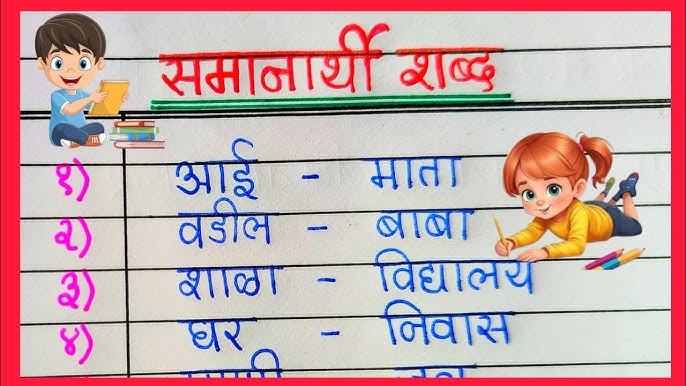 समानार्थी शब्द
१) आई - माता
२) वडील - बाबा
३) शाळा - विद्यालय
४) घर - निवास